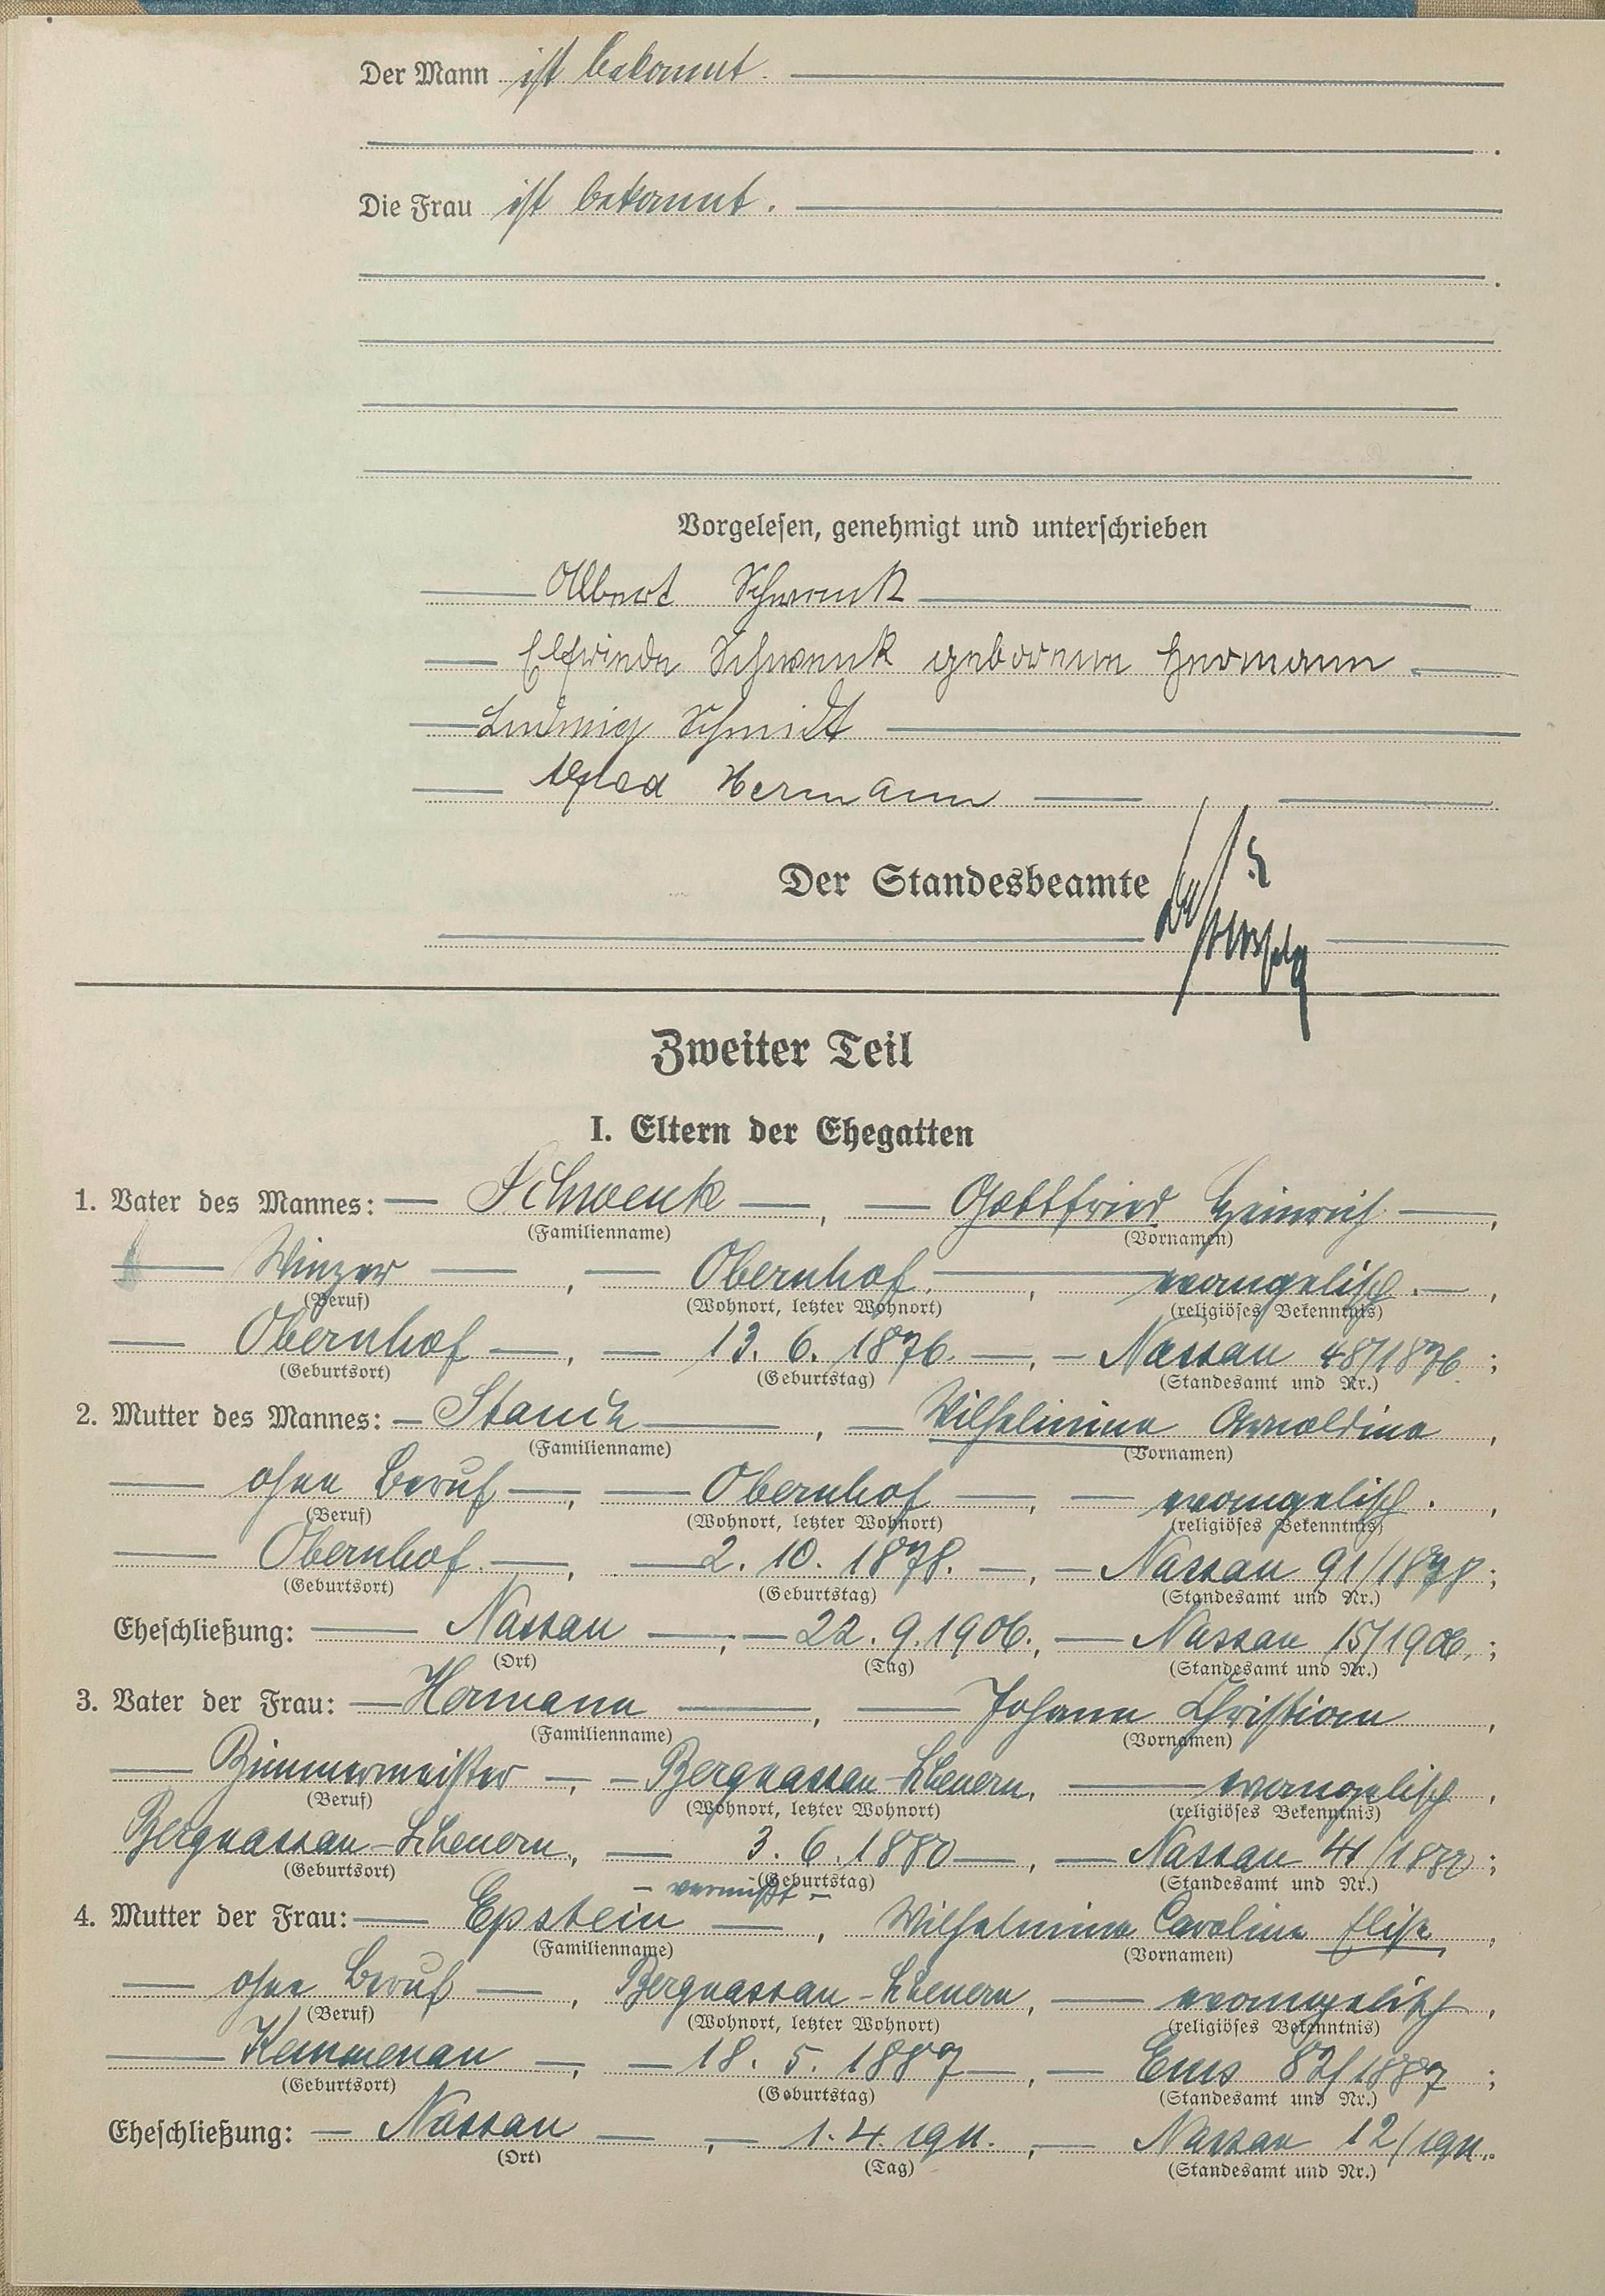 Der Mann ist bekannt.
Die Frau ist bekannt.
Vorgelesen, genehmigt und unterschrieben
Albert Schwenk
Elfriede Schwenk geborene Hermann
Ludwig Schmidt
Hermann
Der Standesbeamte
Zweiter Teil
I. Eltern der Ehegatten
1. Vater des Mannes: Schwenk, Gottfried Heinrich,
(Familienname) (Vornamen)
Winzer, Obernhof, evangelisch.,
(Beruf) (Wohnort, letzter Wohnort) (religiöses Bekenntnis)
Obernhof, 13. 6. 1876., Nassau 48/1876.;
(Geburtsort) (Geburtstag) (Standesamt und Nr.)
2. Mutter des Mannes: Stauch, Wilhelmine Arnoldine,
(Familienname) (Vornamen)
ohne Beruf, Obernhof, evangelisch.,
(Beruf) (Wohnort, letzter Wohnort) (religiöses Bekenntnis)
Obernhof., 2. 10. 1878., Nassau 91/1878;
(Geburtsort) (Geburtstag) (Standesamt und Nr.)
Eheschließung: Nassau, 22. 9. 1906., Nassau 15/1906.;
(Ort) (Tag) (Standesamt und Nr.)
3. Vater der Frau: Hermann, Johann Christian,
(Familienname) (Vornamen)
Zimmermeister, Bergnassau-Scheuern, evangelisch,
(Beruf) (Wohnort, letzter Wohnort) (religiöses Bekenntnis)
Bergnassau-Scheuern, 3. 6. 1880, Nassau 41/1880;
(Geburtsort) (Geburtstag) (Standesamt und Nr.)
- vermißt -
4. Mutter der Frau: Epstein, Wilhelmine Caroline Elise,
(Familienname) (Vornamen)
ohne Beruf, Bergnassau-Scheuern, evangelisch,
(Beruf) (Wohnort, letzter Wohnort) (religiöses Bekenntnis)
Kemmenau, 18. 5. 1887, Ems 82/1887;
(Geburtsort) (Geburtstag) (Standesamt und Nr.)
Eheschließung: Nassau, 1. 4. 1911., Nassau 12/1911.
(Ort) (Tag) (Standesamt und Nr.)